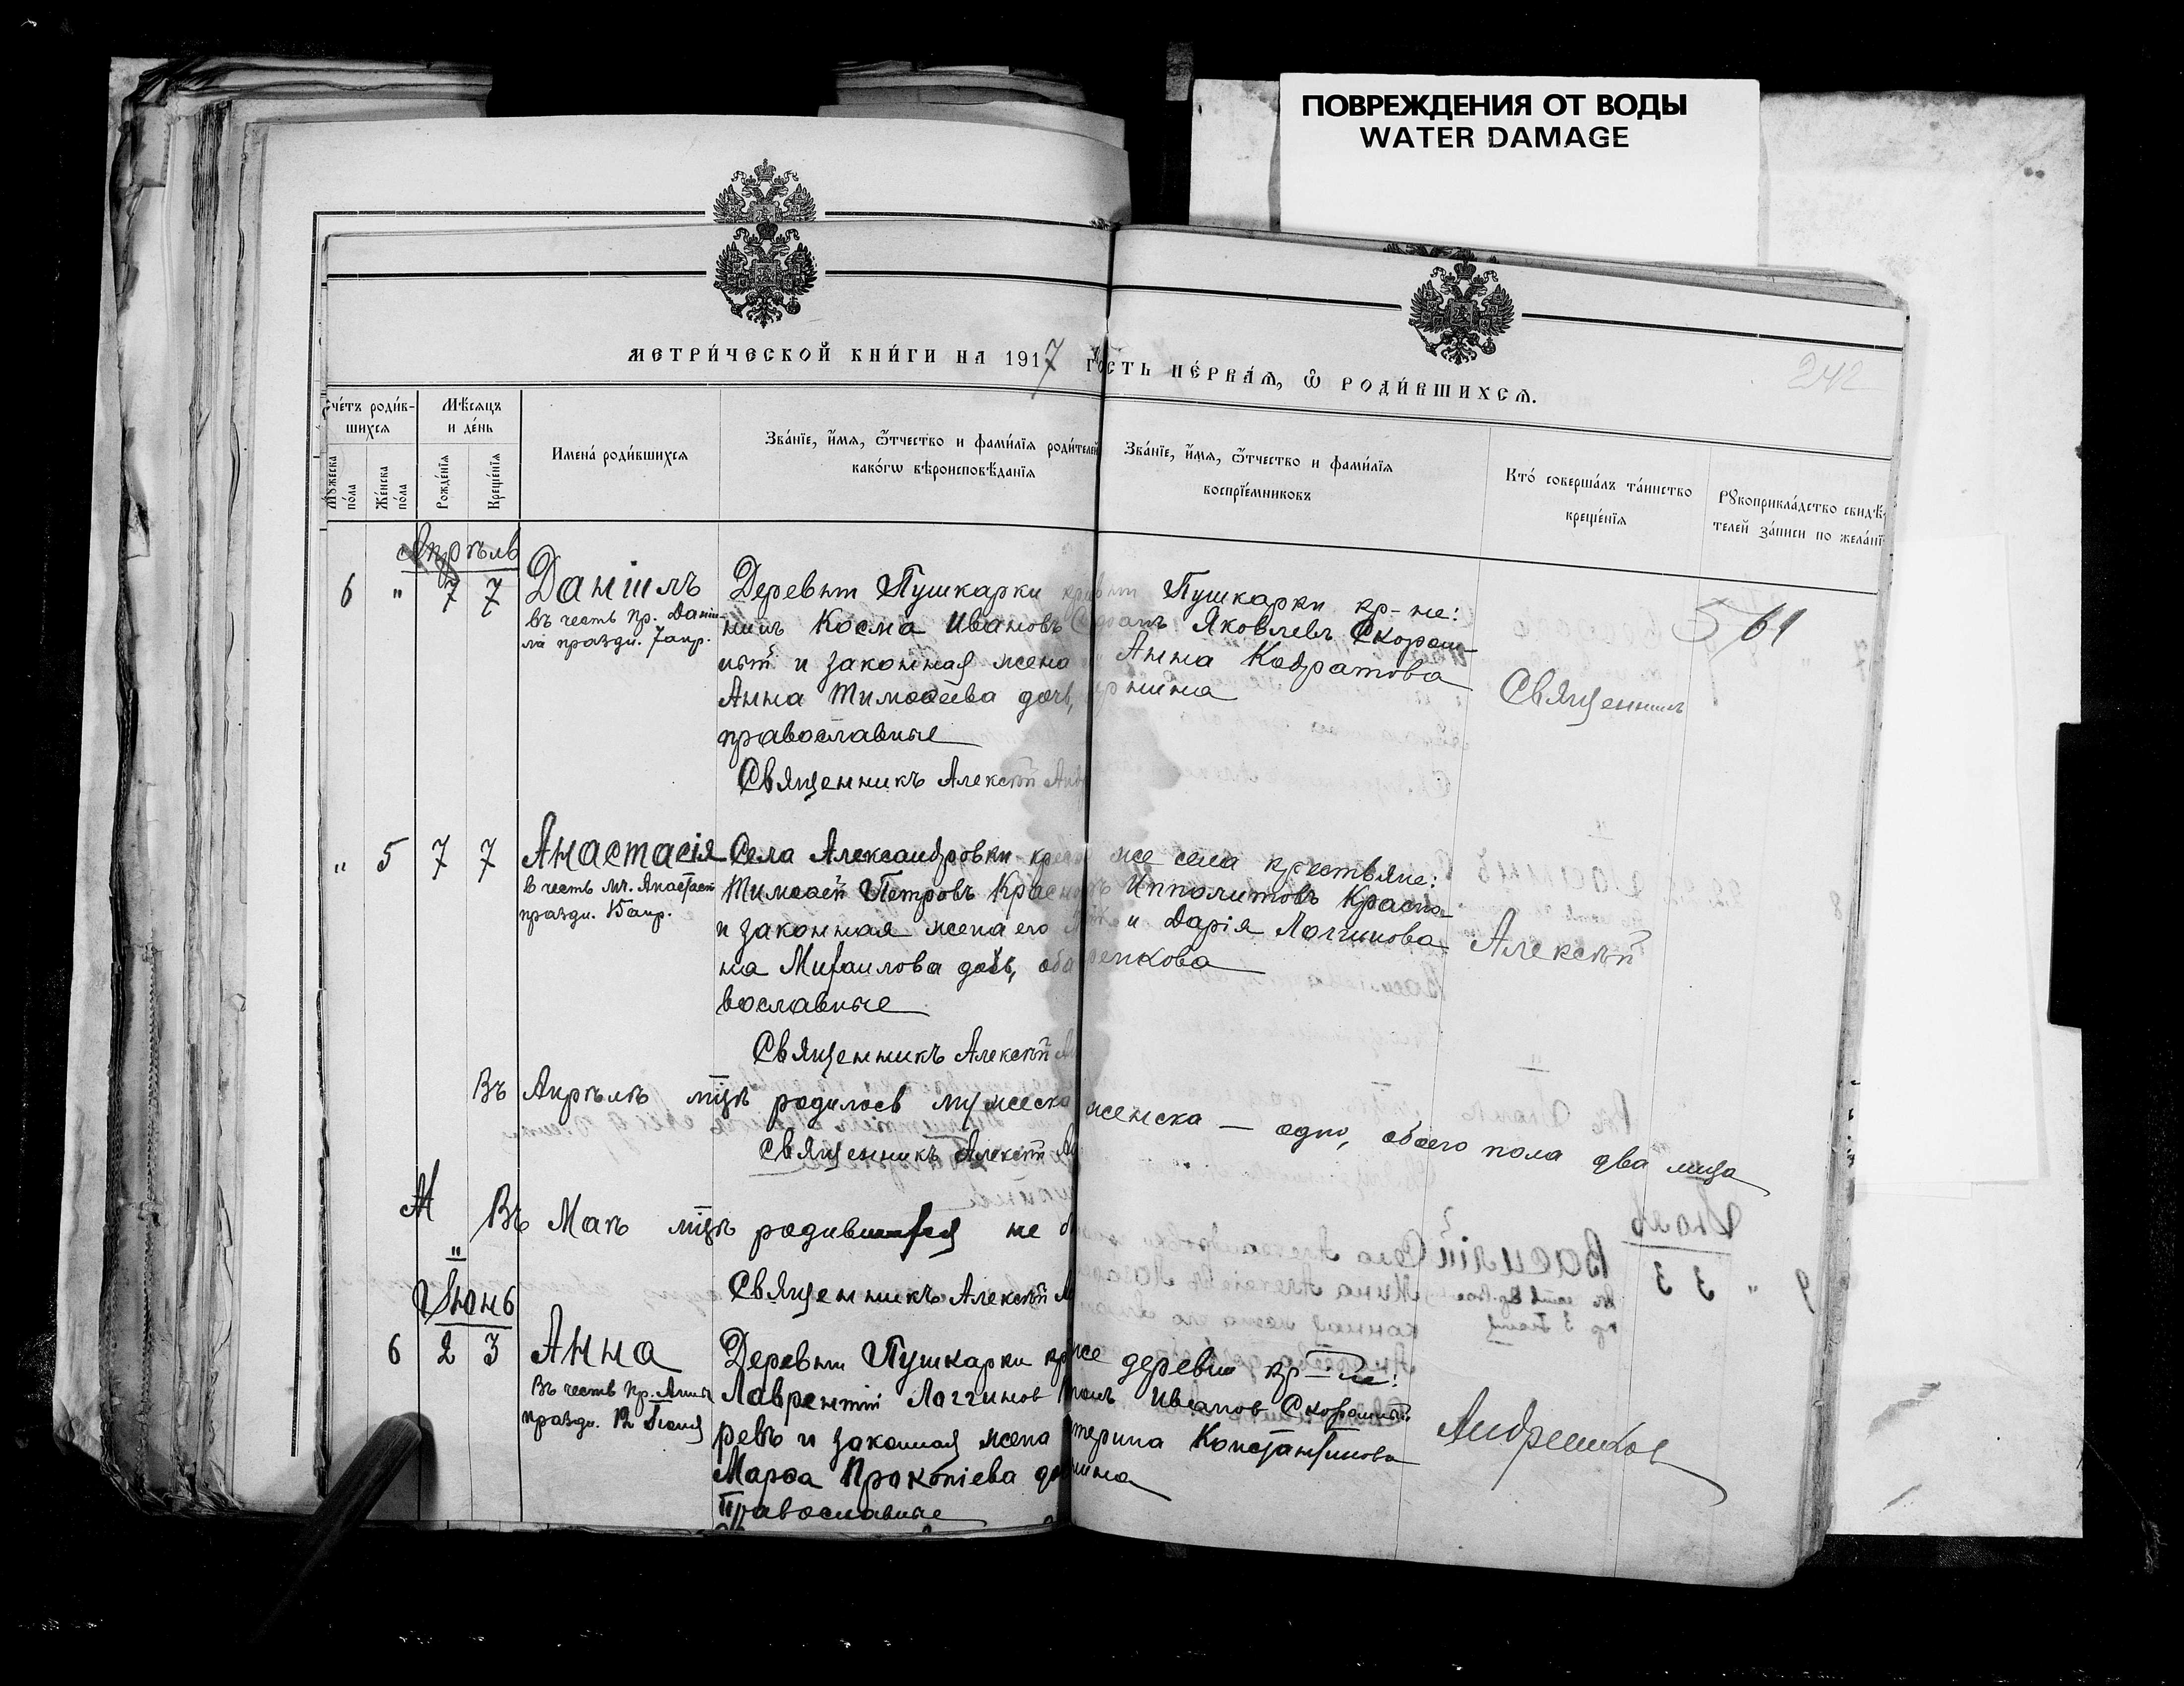 ПОВРЕЖДЕНИЯ ОТ ВОДЫ
WATER DAMAGE
МЕТРИ́ЧЕСКОЙ КНИ́ГИ НА 1917
ГО
СТЬ ПЕ́РВАѦ, Ѡ҆ РОДИ́ВШИХСѦ.
242
Сче́тъ роди́в-
шихсѧ
Мѣ́сѧцъ
и де́нь
Мꙋ́жеска
по́ла
Же́нска
по́ла
Рожде́нїѧ
Креще́нїѧ
Имена́ роди́вшихсѧ
Зва́нїе, и҆́мѧ, ѻ҆́тчество и фами́лїѧ роди́телей
како́гѡ вѣроисповѣ́данїѧ
Зва́нїе, и҆́мѧ, ѻ҆́тчество и фами́лїѧ
воспрїе́мниковъ
Кто́ соверша́лъ та́инство
креще́нїѧ
Рꙋкоприкла́дство свидѣ́-
телей за́писи по жела́нї
Апрѣль
6 " 7 7
Даніилъ
въ честь пр. Дані-
ла праздн. 7 апр.
Деревни Пушкарки
Косма Ивановъ
и законная жена
Анна Тимоѳеева дочь,
православные
Священникъ Алексѣй
Пушкарки кр-не:
Яковлевъ Скором-
Анна Кодратова
нина
561
Священникъ
" 5 7 7
Анастасія
в честь мч. Анастасіи
праздн. 15 апр.
Села Александровки
Тимоѳей Петровъ
и законная жена его
на Михаилова дочь,
вославные
Священникъ Алексѣй
же села крестьяне:
Ипполитовъ Красно-
и Дарія Логгинова
ренкова
Алексѣй
Въ Апрѣлѣ мцѣ родилось мужеска
женска — одно, обоего пола два лица
Священникъ Алексѣй
М Въ Маѣ мцѣ родившихся не
Священникъ Алексѣй
Іюнь
6 2 3
Анна
Въ честь пр. Анны
праздн. 12 Іюня
Деревни Пушкарки
Лаврентій Логгинов
ревъ и законная жена
Марѳа Прокопіева
Православные
же деревни кр-не:
Иванов
терина Константинова
нина